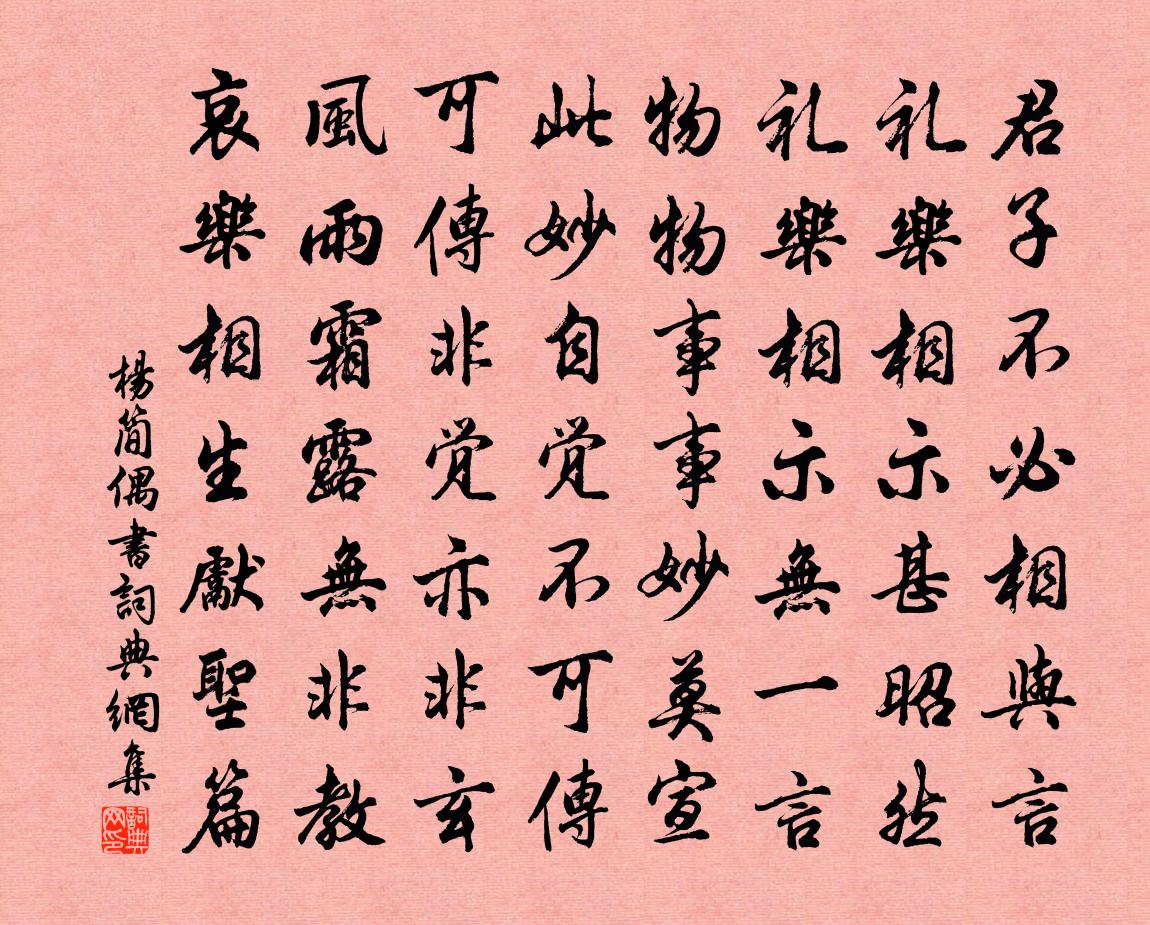 君子不必相與言
礼樂相示甚昭然
礼樂相示無一言
物物事事妙莫宣
此妙自覚不可傳
可傳非覚亦非玄
風雨霜露無非教
哀樂相生獻聖篇
楊簡偶書詞典網集
詞典网印